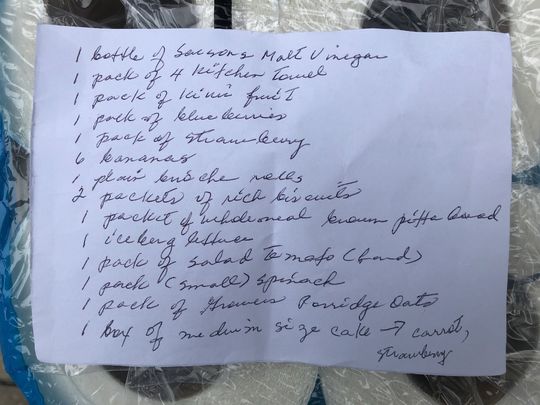 1 bottle of Sarsons Malt Vinegar
1 pack of 4 kitchen towel
1 pack of kiwi fruit
1 pack of blueberries
1 pack of strawberry
6 bananas
1 plain brioche rolls
2 packets of rich biscuits
1 packet of wholemeal brown pitta bread
1 iceberg lettuce
1 pack of salad tomato (hard)
1 pack (small) spinach
1 pack of Porridge Oats
1 box of medium size cake → carrot,
strawberry